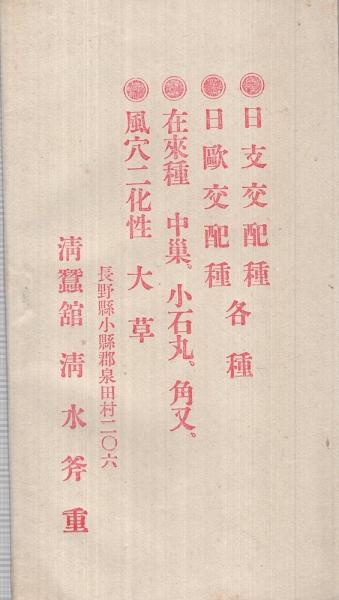 日支交配種
日歐交配種
各種
在來種 中巢、小石丸、角又、
風穴二化性 大草
長野縣小縣郡泉田村二〇六
淸蠶舘 淸水斧重